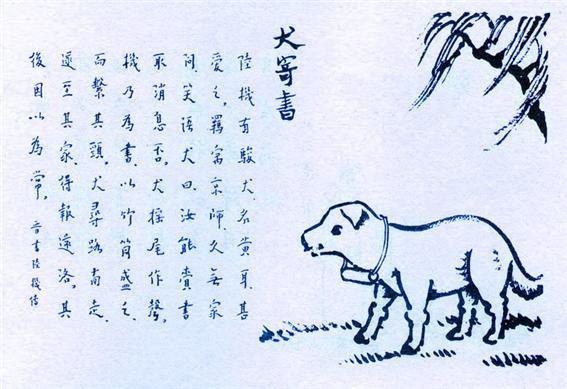 犬寄書
陸機有駿犬，名黃耳，甚
愛之。羈寓京師，久無家
問，笑語犬曰，汝能賫書
取消息否。犬搖尾作聲。
機乃為書，以竹筒盛之，
而繫其頸。犬尋路南走，
遂至其家，得報還洛。其
後因以為常。 晉書陸機傳